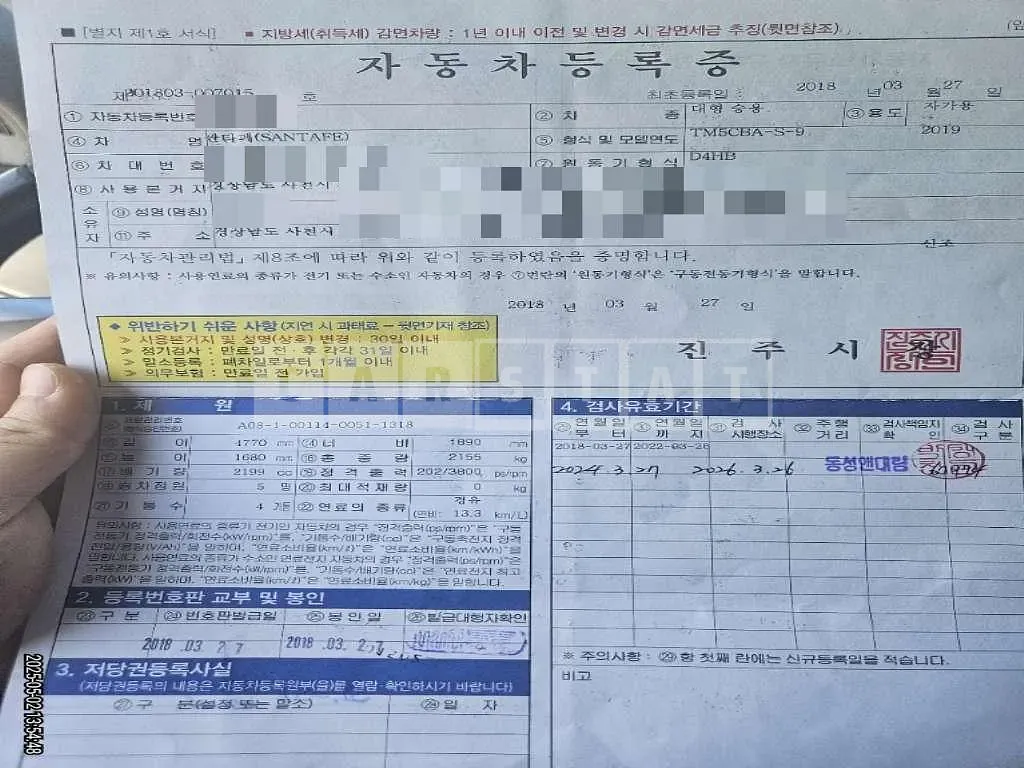 ■ [별지 제1호 서식]
■ 지방세(취득세) 감면차량 : 1년 이내 이전 및 변경 시 감면세금 추징(뒷면참조)
자동차등록증
제 201803-007015 호
최초등록일 : 2018 년 03 월 27 일
① 자동차등록번호
② 차 종 대형 승용
③ 용도 자가용
④ 차 명 싼타페(SANTAFE)
⑤ 형식 및 모델연도 TM5CBA-S-9 2019
⑥ 차대번호
⑦ 원동기형식 D4HB
⑧ 사용본거지 경상남도 사천시
소유자
⑨ 성명(명칭)
⑪ 주 소 경상남도 사천시
「자동차관리법」 제8조에 따라 위와 같이 등록하였음을 증명합니다.
※ 유의사항 : 사용연료의 종류가 전기 또는 수소인 자동차의 경우 ⑦번란의 '원동기형식'은 '구동전동기형식'을 말합니다.
2018 년 03 월 27 일
◆ 위반하기 쉬운 사항(지연 시 과태료 - 뒷면기재 참조)
➢ 사용본거지 및 성명(상호) 변경 : 30일 이내
➢ 정기검사 : 만료일 전·후 각각 31일 이내
➢ 말소등록 : 폐차일로부터 1개월 이내
➢ 의무보험 : 만료일 전 가입
진주시장
CARSTAT
1. 제 원
A08-1-00114-0051-1318
길 이 4770 mm 너 비 1890 mm
높 이 1680 mm 총 중 량 2155 kg
배 기 량 2199 cc 정격출력 202/3800 ps/rpm
승차정원 5 명 최대적재량 0 kg
기 통 수 4 기통 연료의 종류 경유 (연비: 13.3 km/L)
유의사항 : 사용연료의 종류가 전기인 자동차의 경우 "정격출력(ps/rpm)"은 "구동
전동기 정격출력/회전수(kW/rpm)"를, "기통수/배기량(cc)"은 "구동축전지 정격
전압/용량(V/Ah)"을 말하며, "연료소비율(km/ℓ)"은 "연료소비율(km/kWh)"을
말합니다. 사용연료의 종류가 수소인 연료전지 자동차의 경우 "정격출력(ps/rpm)"은
"구동전동기 정격출력/회전수(kW/rpm)"를, "기통수/배기량(cc)"은 "연료전지 최고
출력(kW)"을 말하며, "연료소비율(km/ℓ)"은 "연료소비율(km/kg)"을 말합니다.
2. 등록번호판 교부 및 봉인
구 분 번호판발급일 봉인일 발급대행자확인
2018 .03. 27 2018 .03. 27
3. 저당권등록사실
(저당권등록의 내용은 자동차등록원부(을)를 열람·확인하시기 바랍니다)
㉗ 구 분(설정 또는 말소) ㉘ 일 자
4. 검사유효기간
㉙ 연월일부터 ㉚ 연월일까지 ㉛ 검사시행장소 ㉜ 주행거리 ㉝ 검사책임자확인 ㉞ 검사구분
2018-03-27 2022-03-26
2024.3.27 2026.3.26 동성앤대림
※ 주의사항 : ㉙항 첫째 란에는 신규등록일을 적습니다.
비고
2025-05-02 13:54:48